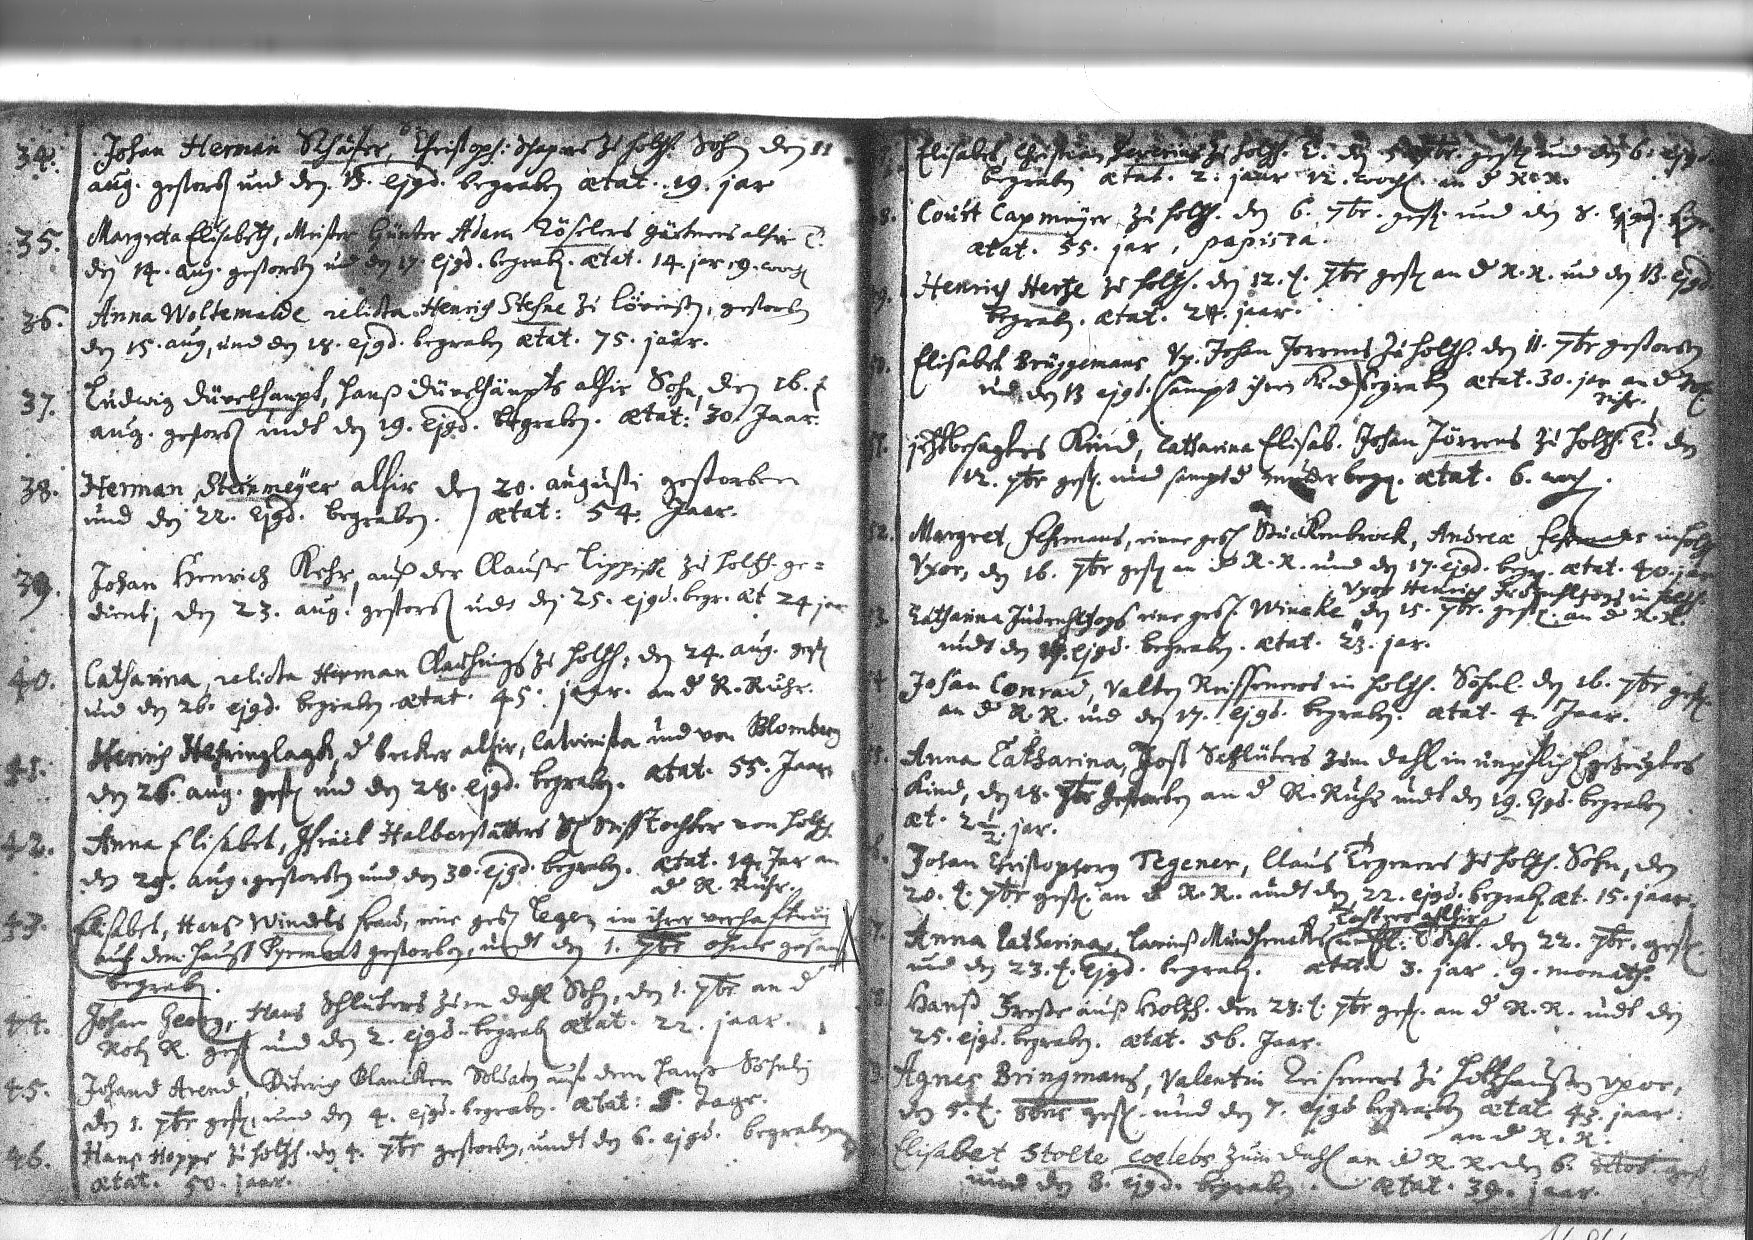 34. Johan Herman Schäfer, Christoph: Schapers zu Holtzh. Sohn den 11
aug. gestorb. und den 13. ejgd. begraben ætat. 19. jar
35. Margreta Elisabeth, Meister Günter Adam Röslers gärtners alhir T.
den 14. aug. gestorben und den 17. ejgd. begrab. ætat. 14. jar 19. woch
36. Anna Woltemaide relicta Henrich Stehne zu Löwensen, gestorben
den 15. aug, und den 18. ejgd. begraben ætat. 75. jaar.
37. Ludwig Düvelhaupt, Hanß Düvelhäupts alhir Sohn, den 16.
aug. gestorb. undt den 19. ejgd. begraben. ætat: 30. Jaar.
38. Herman Steinmeyer alhir den 20. augusti gestorben
und den 22. ejgd. begraben. ætat: 54. Jaar.
39. Johan Henrich Kehr, auß der Clause Lippisch zu Holtzh. ge=
dient, den 23. aug. gestorb. undt den 25. ejgd. begr. æt 24 jar
40. Catharina, relicta Herman Clausings zu Holtzh, den 24. aug. gest.
und den 26. ejgd. begraben ætat. 45. jaar. an d R. Ruhr.
41. Henrich Hehringlagk, d becker alhir, Calvinista und von Blomberg
den 26. aug. gest. und den 28. ejgd. begraben. ætat. 55. Jaar
42. Anna Elisabet, Israel Halberstätters Stifftochter von Holtzh.
den 29. aug. gestorben und den 30. ejgd. begraben. ætat. 14. Jar an
d R. Ruhr.
43. Elisabet, Hanß Windels frau, eine geb. Tegen in ihrer verhaftung
auf dem Hauß Pyrmont gestorben, undt den 1. 7br ohne gesang
begraben.
44. Johan Georg, Hans Schlüters zum Dahl Sohn, den 1. 7br an d
Roth R. gest. und den 2. ejgd. begrab. ætat. 22. jaar.
45. Johand Arend, Dietrich Blancken Soldaten auf dem Hauße Söhnlein
den 1. 7br gest. und den 4. ejgd. begraben. ætat: 5. Tage.
46. Hanß Hoppe zu Holtzh. den 4. 7br gestorben, undt den 6. ejgd. begraben
ætat. 50. jaar.
Elisabet, Christian zu Holtzh. T. den 7br. gest. und den 6. ejgd.
begraben ætat. 2. jaar 12. woch. an d R. R.
8. Courtt Capmeyer zu Holtzh. den 6. 7br. gest. und den 8. ejgd. begr.
ætat. 55. jar, papista.
9. Henrich Hertze zu Holtzh. den 12. 7br gest. an d R. R. und den 13. ejgd.
begraben. ætat. 24. jaar.
Elisabet Brüggemans Vx. Johan Jorrens zu Holtzh. den 11. 7br gestorben
und den 13 ejgd. (sampt ihren Kind) begraben ætat. 30. jar an d Roth
Ruhr.
jetztbesagtes Kind, Catharina Elisab. Johan Jörrens zu Holtzh. T. den
12. 7br gest. und sampt d mutter begr. ætat. 6. woch.
52. Margret Fehrmans, eine geb. Stückenbrock, Andreæ Fehrmans in Holtzh
Vxor, den 16. 7br gest. an d R. R. und den 17. ejgd. begr. ætat. 40. jar
vxor Henrich in Holtzh.
3. Catharina eine geb. Wineke den 15. 7br. gest. an d R. R.
undt den ejgd. begraben. ætat. 23. jar.
54 Johan Conrad, Valten Reisseners in Holtzh. Söhnl. den 16. 7br gest.
an d R. R. und den 17. ejgd. begraben. ætat. 4. Jaar.
Anna Catharina, Jost Schlüters zum Dahl in unpflicht gezeugtes
Kind, den 18. 7br gestorben an d R. Ruhr undt den 19. ejgd. begraben
æt. 2 1/2. jar.
Johan Christopherg Tegener, Claus Tegeners zu Holtzh. Sohn, den
20. 7br gest. an d R. R. undt den 22. ejgd. begrab. æt. 15. jaar.
7. Anna Catharina, Tochter den 22. 7br. gest.
und den 23. ejgd. begrab. ætat. 3. jar. 9. monath.
8. Hanß Frese auß Holtzh. den 23. 7br gest. an d R. R. undt den
25. ejgd. begraben. ætat. 56. Jaar.
Agnes Bringmans, Valentin Reiseners zu Holtzhaußen vxor,
den 5. 8bris gest. und den 7. ejgd begraben ætat 43. jaar.
an d R. R.
Elisabet Stolte cœlebs zum Dahl an d R. R. den 6. octob. gest
und den 8. ejgd. begraben. ætat. 39. jaar.